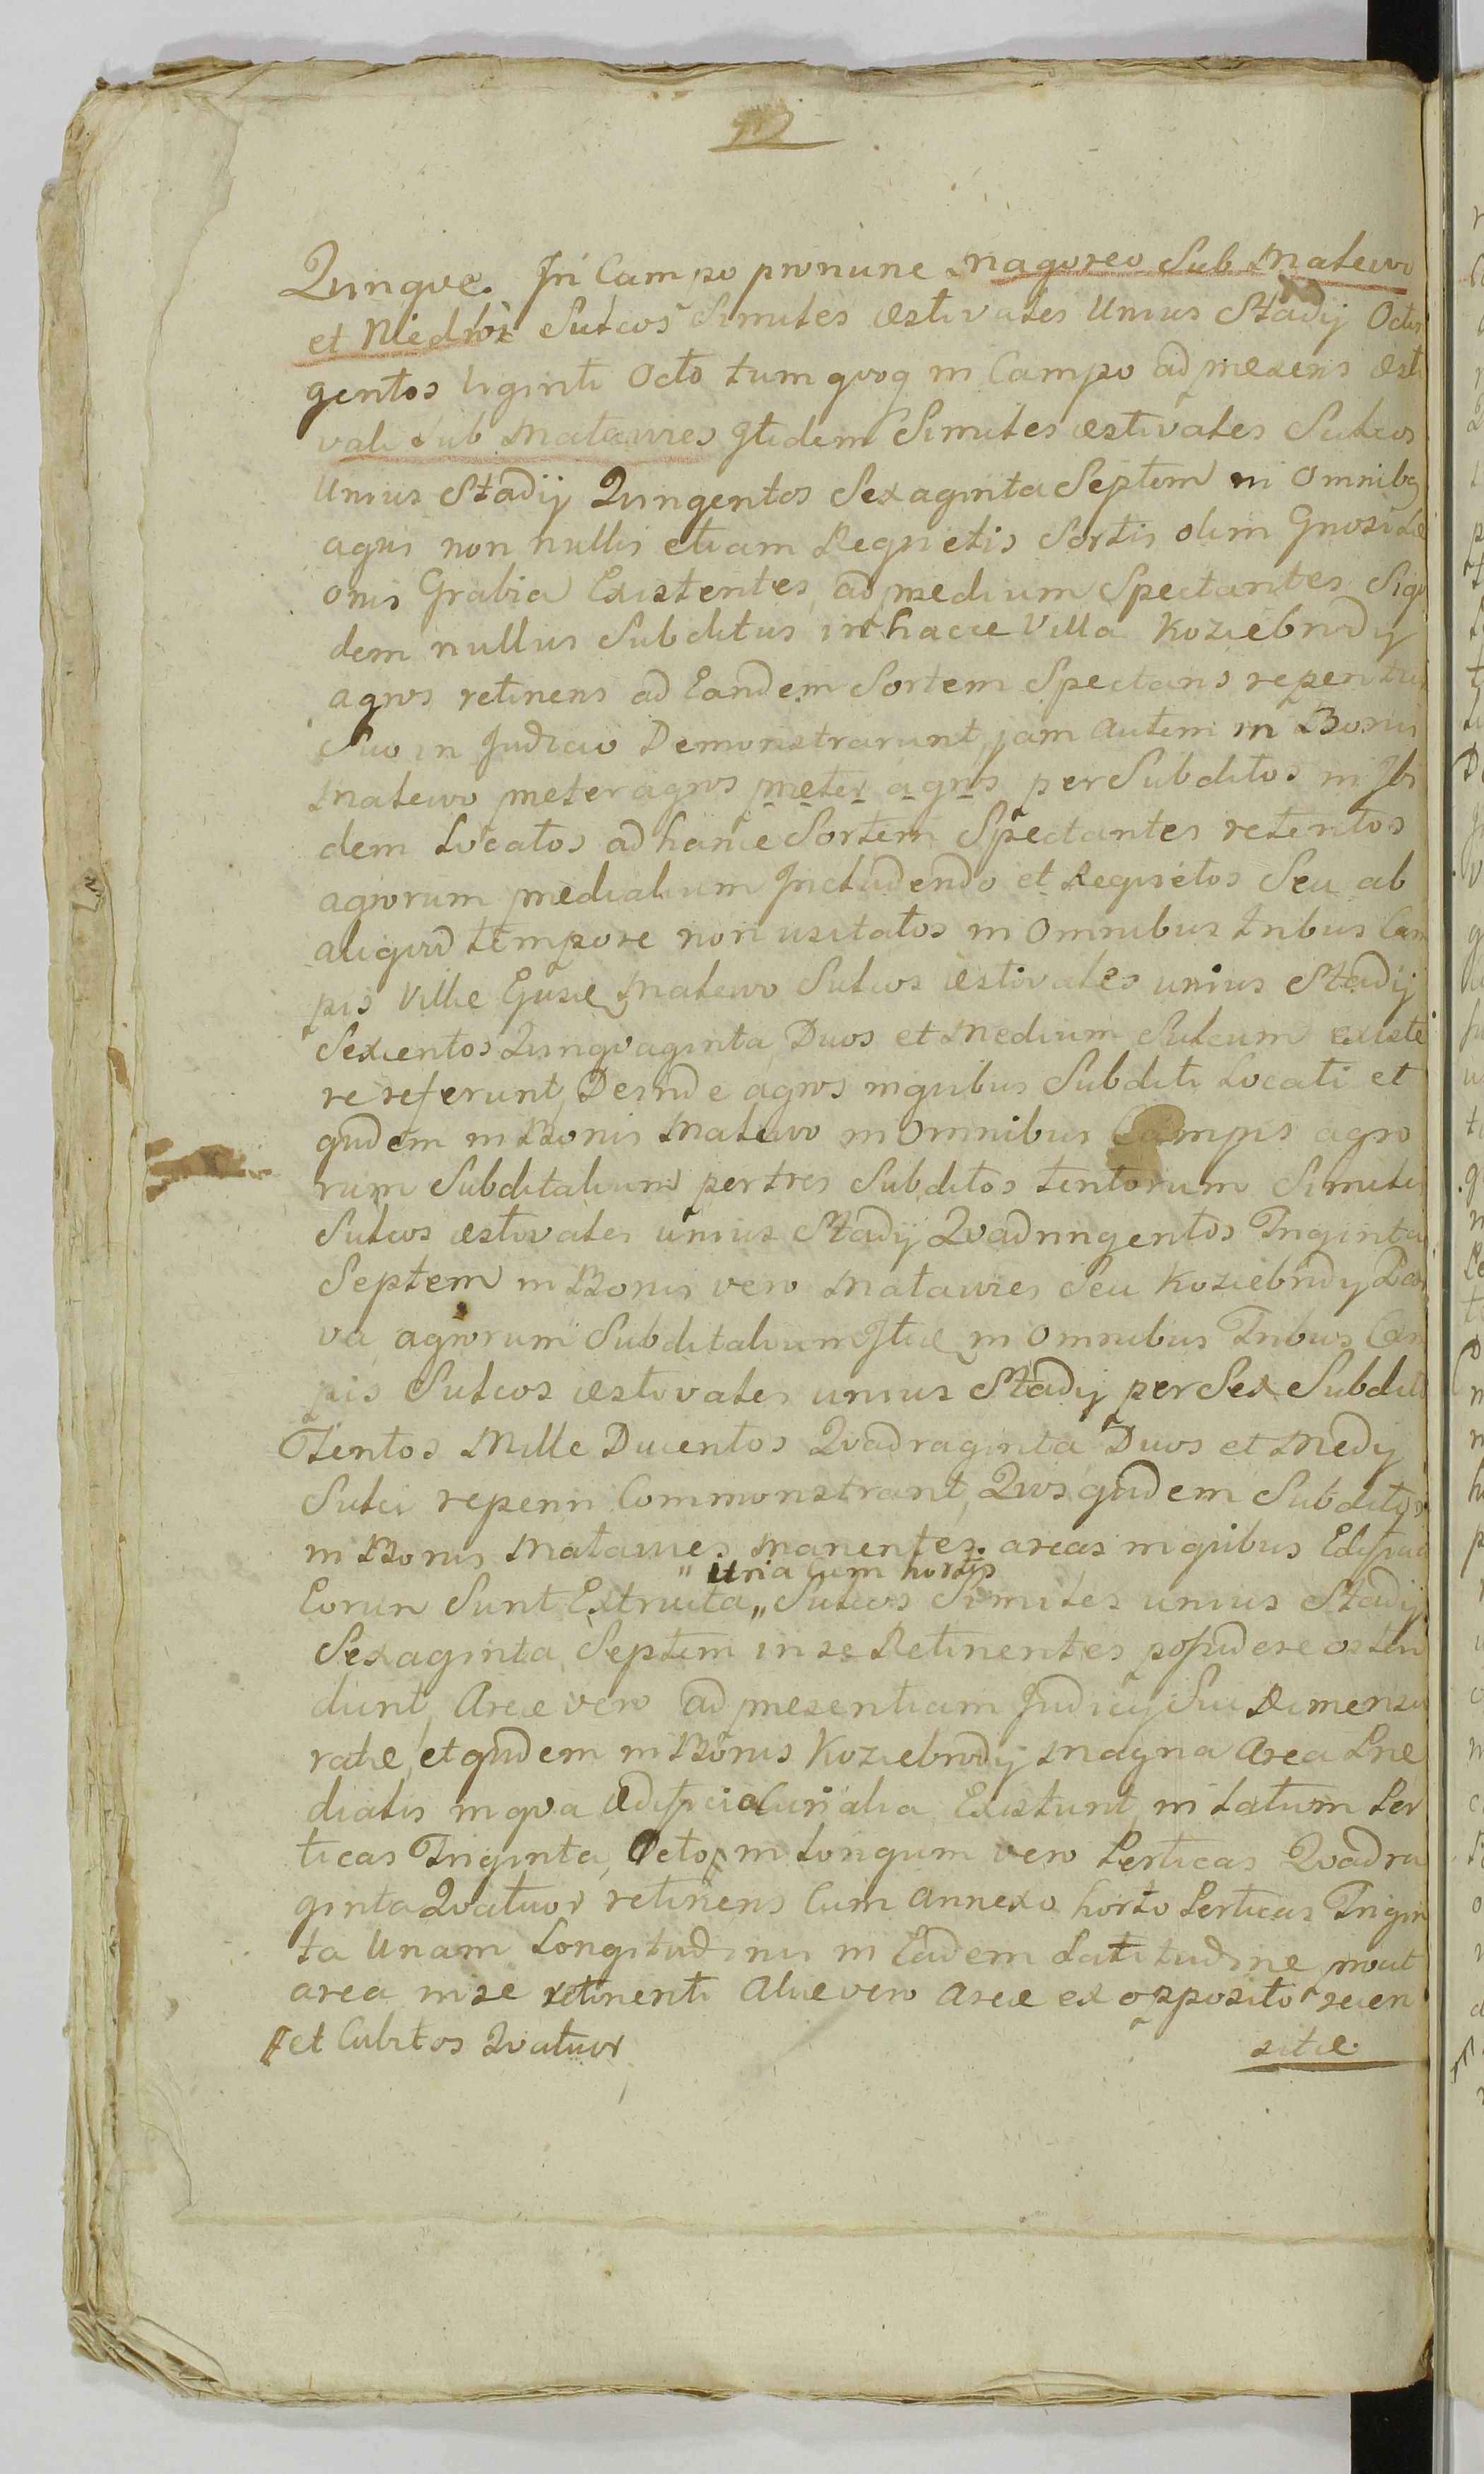 Qvinqve. In Campo pronunc Nagoreo Sub Matewo
et Niedroz Sulcos Similes æstivales Unius Stadij Octin
gentos Viginti Octo tum qvoq in Campo ad præsens æsti
vali Sub Matawies Itidem Similes æstivales Sulcos
Unius Stadij Qvingentos Sexaginta Septem in Omnibq
agris non nullis etiam Reqvietis Sortis olim Gnosi Le
onis Grabia Existentes, ad prædium Spectantes Siqvi
dem nullus Subditus in hacce Villa Koziebrody
agros retinens ad Eandem Sortem Spectans reperitur
Suo in Judicio Demonstrarunt, jam autem in Bonis
Matewo præter agros præter agros per Subditos in Ibi
dem Locatos ad hance Sortem Spectantes retentos
agrorum prædialium Includendo et Reqvietos Seu ab
aliqvod tempore non usitatos in Omnibus tribus Cam
pis Villæ Ejusd Matewo Sulcos æstivales unius Stadij
Sexcentos Qvinqvaginta Duos et Medium Sulcum existe
re referunt, Deinde agros inqvibus Subditi Locati et
qvidem in Bonis Matewo in Omnibus Campis agro
rum Subditalium per tres Subditos tentorum Similes
Sulcos æstivales unius Stadij Qvadringentos Triginta
Septem in Bonis vero Matawies Seu Koziebrody
va agrorum Subditalium in Omnibus Tribus Cam
pis Sulcos æstivales unius Stadij per Sex Subdit
Tentos Mille Ducentos Qvadraginta Duos et Medij
Sulci reperiri Commonstrant, Qvos qvidem Subditos
in Bonis Matawies Manentes. areas inqvibus Edificia
„ Una cum hortis
Eorum Sunt Extructa „ Sulcos Similes unius Stadij
Sexaginta Septem in se Retinentes possidere osten
dunt, Areæ vero ad præsentiam Judicij Sui Dimensu
ratæ, et qvidem in Bonis Koziebrody Magna Area Præ
dialis in qva ædificia Curialia Existunt, in Latum Per
ticas Triginta, Octo, in Longum vero Perticas Qvadra
ginta Qvatuor retinens Cum Annexo horto Perticas Trigin
ta Unam Longitudinis in Eadem Latitudine prout
area in se retinenti Aliæ vero Areæ ex opposito recen
et Cubitos Qvatuor
sitæ.